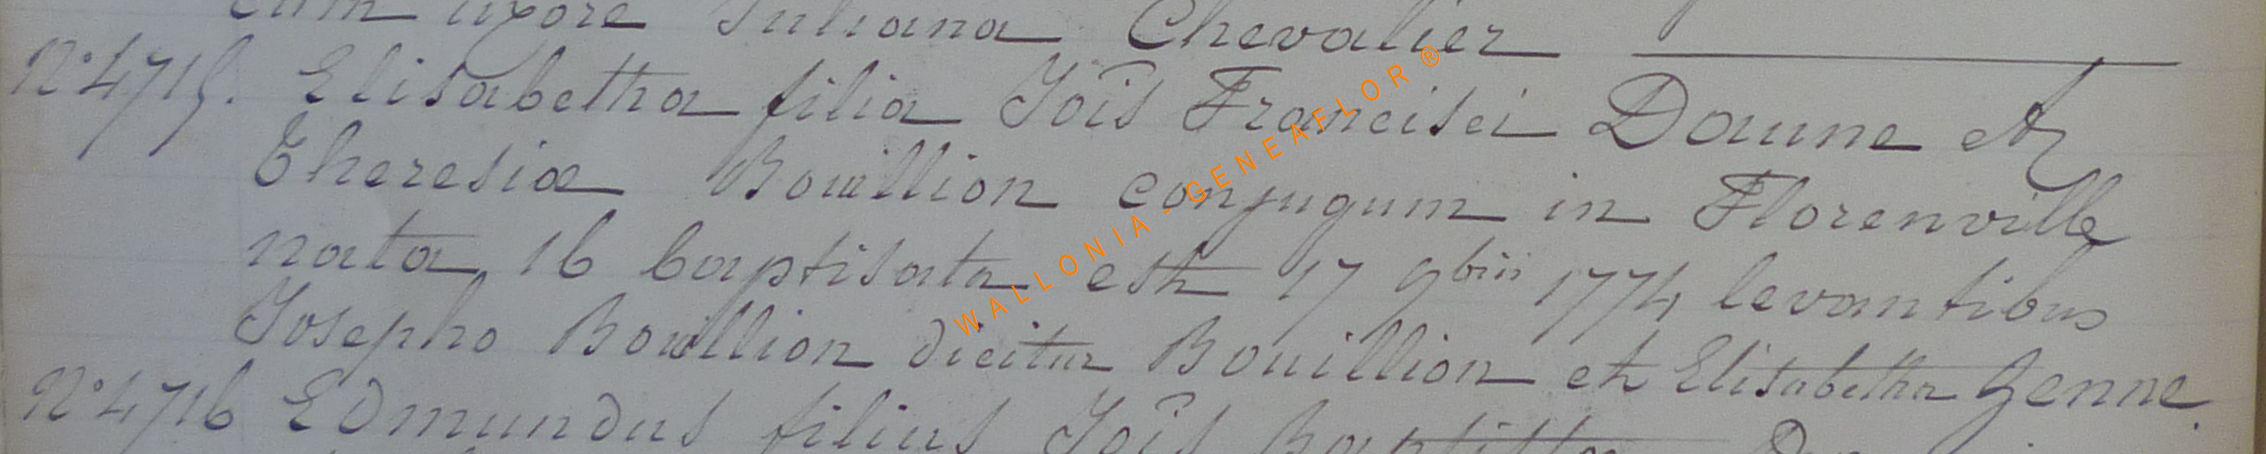 cum uxore Juliana Chevalier
N° 4715. Elisabetha filia Joîs Francisci Daune et
Theresiæ Bouillion conjugum in Florenville
nata 16 baptisata est 17 9bris 1774 levantibus
Josepho Bouillion dicitur Bouillion et Elisabetha Genne.
N° 4716 Edmundus filius Joîs Baptistæ
WALLONIA - GENEAFLOR ®